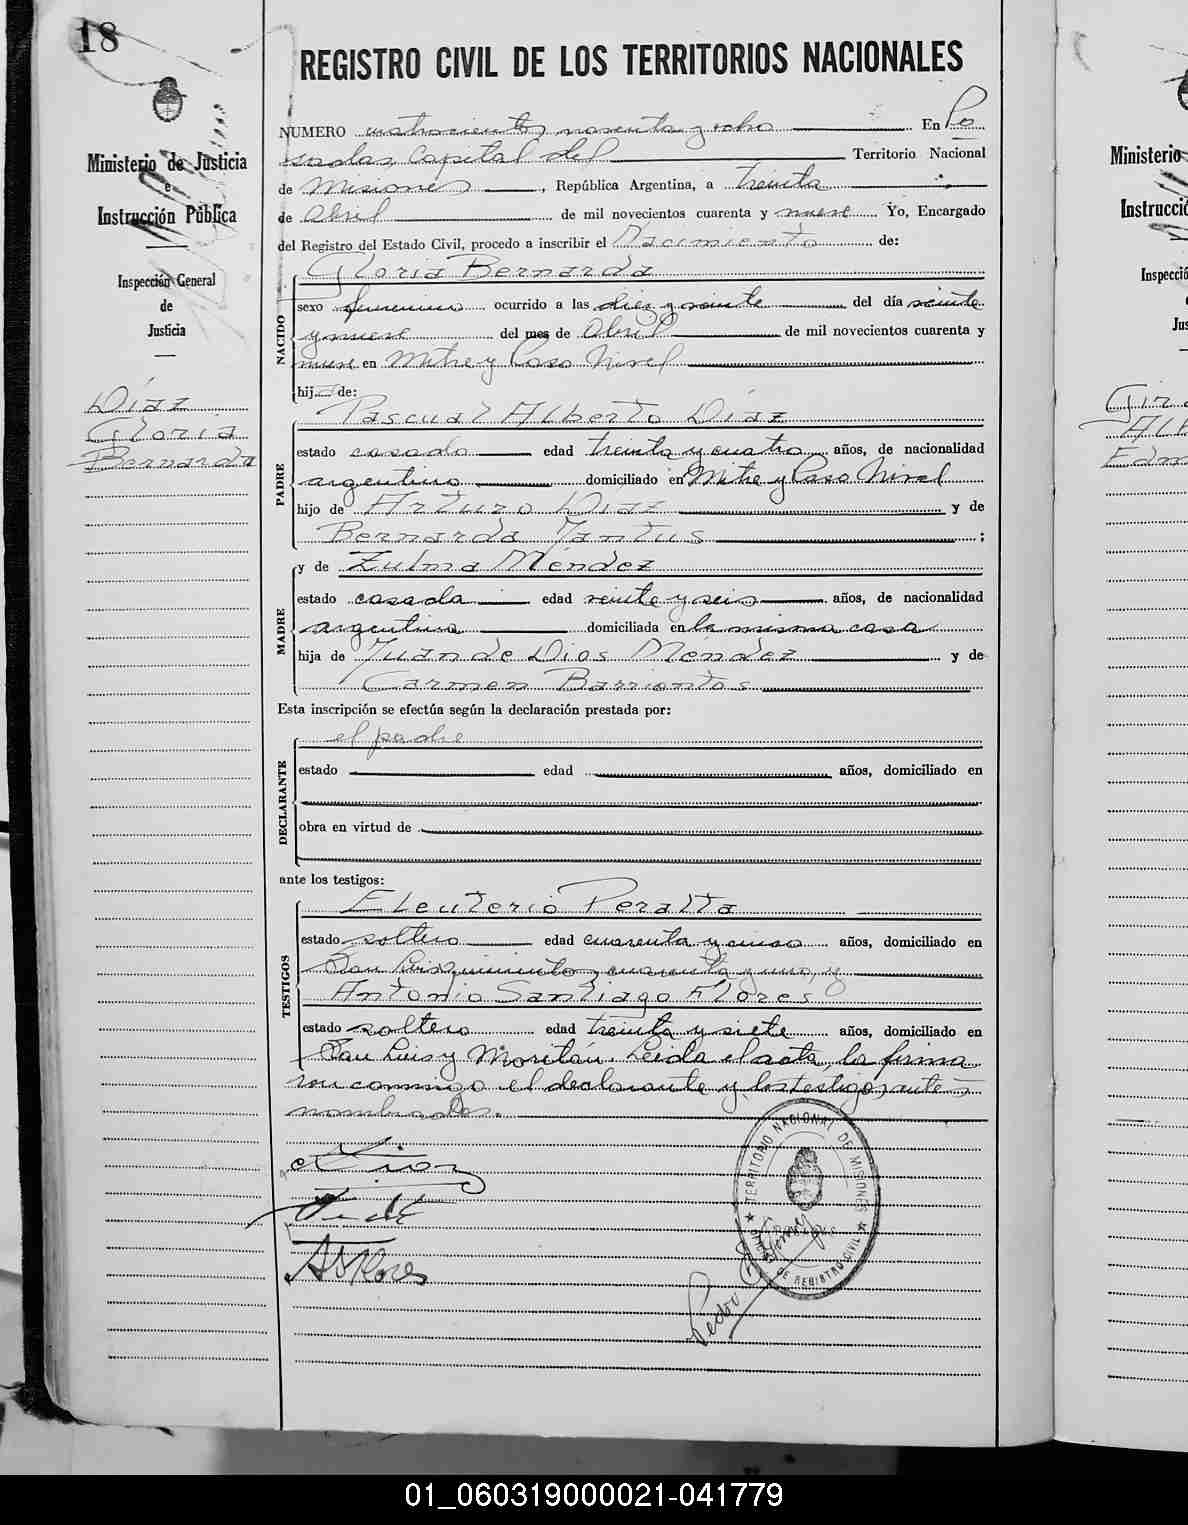 18
REGISTRO CIVIL DE LOS TERRITORIOS NACIONALES
Ministerio de Justicia
e
Instrucción Pública
Inspección General
de
Justicia
Díaz
Gloria
Bernarda
NUMERO cuatrocientos noventa y ocho En Po
sadas, Capital del Territorio Nacional
de Misiones, República Argentina, a treinta
de Abril de mil novecientos cuarenta y nueve Yo, Encargado
del Registro del Estado Civil, procedo a inscribir el Nacimiento de:
NACIDO
Gloria Bernarda
sexo femenino ocurrido a las diez y veinte del día veinte
y nueve del mes de Abril de mil novecientos cuarenta y
nueve en Mitre y Paso Nivel
hij de:
PADRE
Pascual Alberto Díaz
estado casado edad treinta y cuatro años, de nacionalidad
argentino domiciliado en Mitre y Paso Nivel
hijo de Arturo Diaz y de
Bernarda ;
MADRE
y de Zulma Méndez
estado casada edad veinte y seis años, de nacionalidad
argentina domiciliada en la misma casa
hija de Juan de Dios Méndez y de
Carmen Barrientos
Esta inscripción se efectúa según la declaración prestada por:
DECLARANTE
el padre
estado edad años, domiciliado en
obra en virtud de
ante los testigos:
TESTIGOS
Eleuterio Peralta
estado soltero edad cuarenta y cinco años, domiciliado en
San Luis quinientos cuarenta y uno, y
Antonio Santiago Flores
estado soltero edad treinta y siete años, domiciliado en
San Luis y Moritán. Leida el acta, la firma
ron conmigo el declarante y los testigos antes
nombrados.
ASFlores
TERRITORIO NACIONAL DE MISIONES
DE REGISTRO CIVIL
Pedro
Ministerio
Instrucció
Inspecció
Jus
01_060319000021-041779